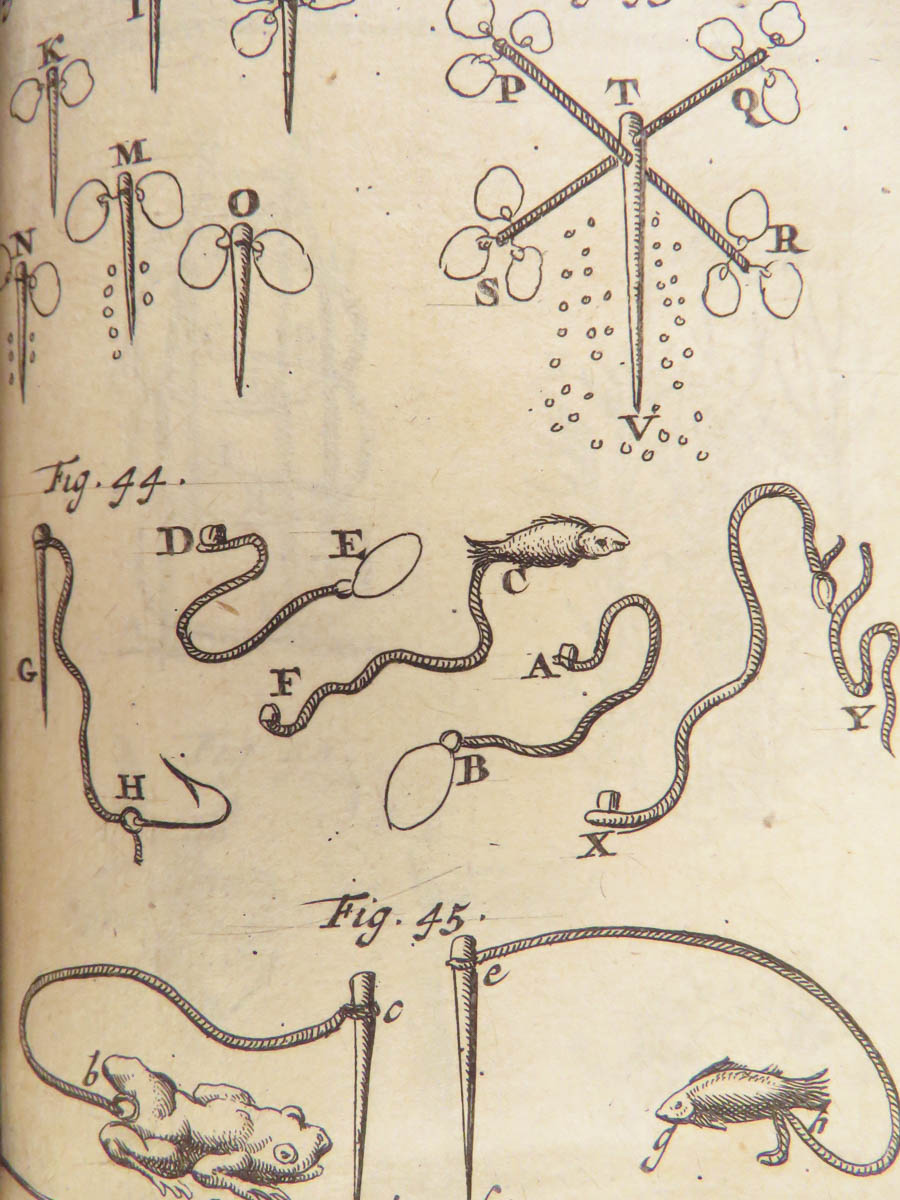 K
P
T
Q
M
O
N
R
S
V
Fig. 44.
D
E
C
G
F
A
H
B
Y
X
Fig. 45.
e
c
b
g
h